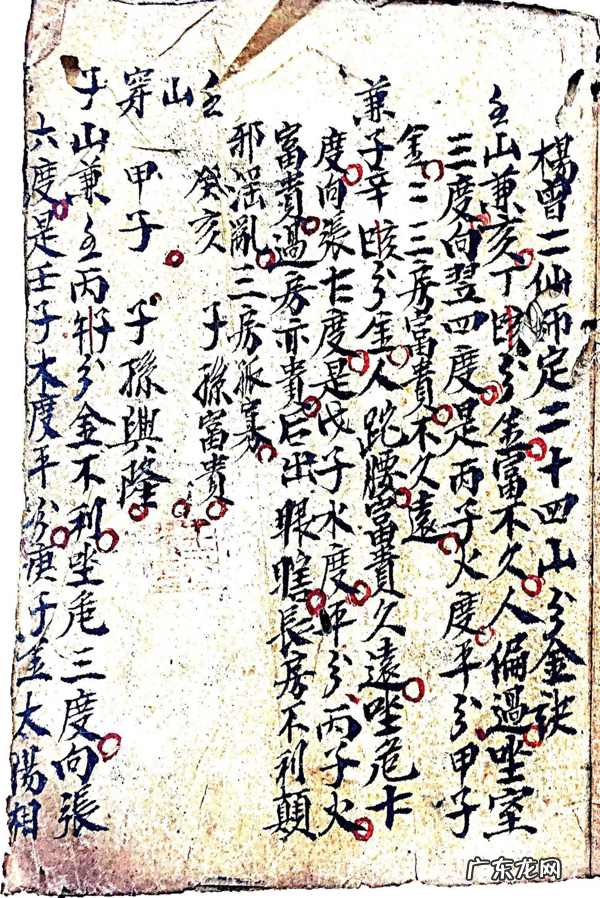 楊曾二仙师定二十四山分金訣
壬山兼亥丁亥分金富不久人偏過坐室
三度向翌四度是丙子火度平分甲子
金二三房富貴不久遠
兼子辛亥分金人跎腰富貴久遠坐危十
度向張七度是戊子水度平分丙子火
富貴過房亦貴后出眼瞎長房不利顛
邪淫亂三房孤寡
壬 癸亥 子孫富貴
山
穿 甲子 子孫興隆
子山兼壬丙子分金不利坐危三度向張
六度是壬子木度平分庚子金太陽相
广东龙网